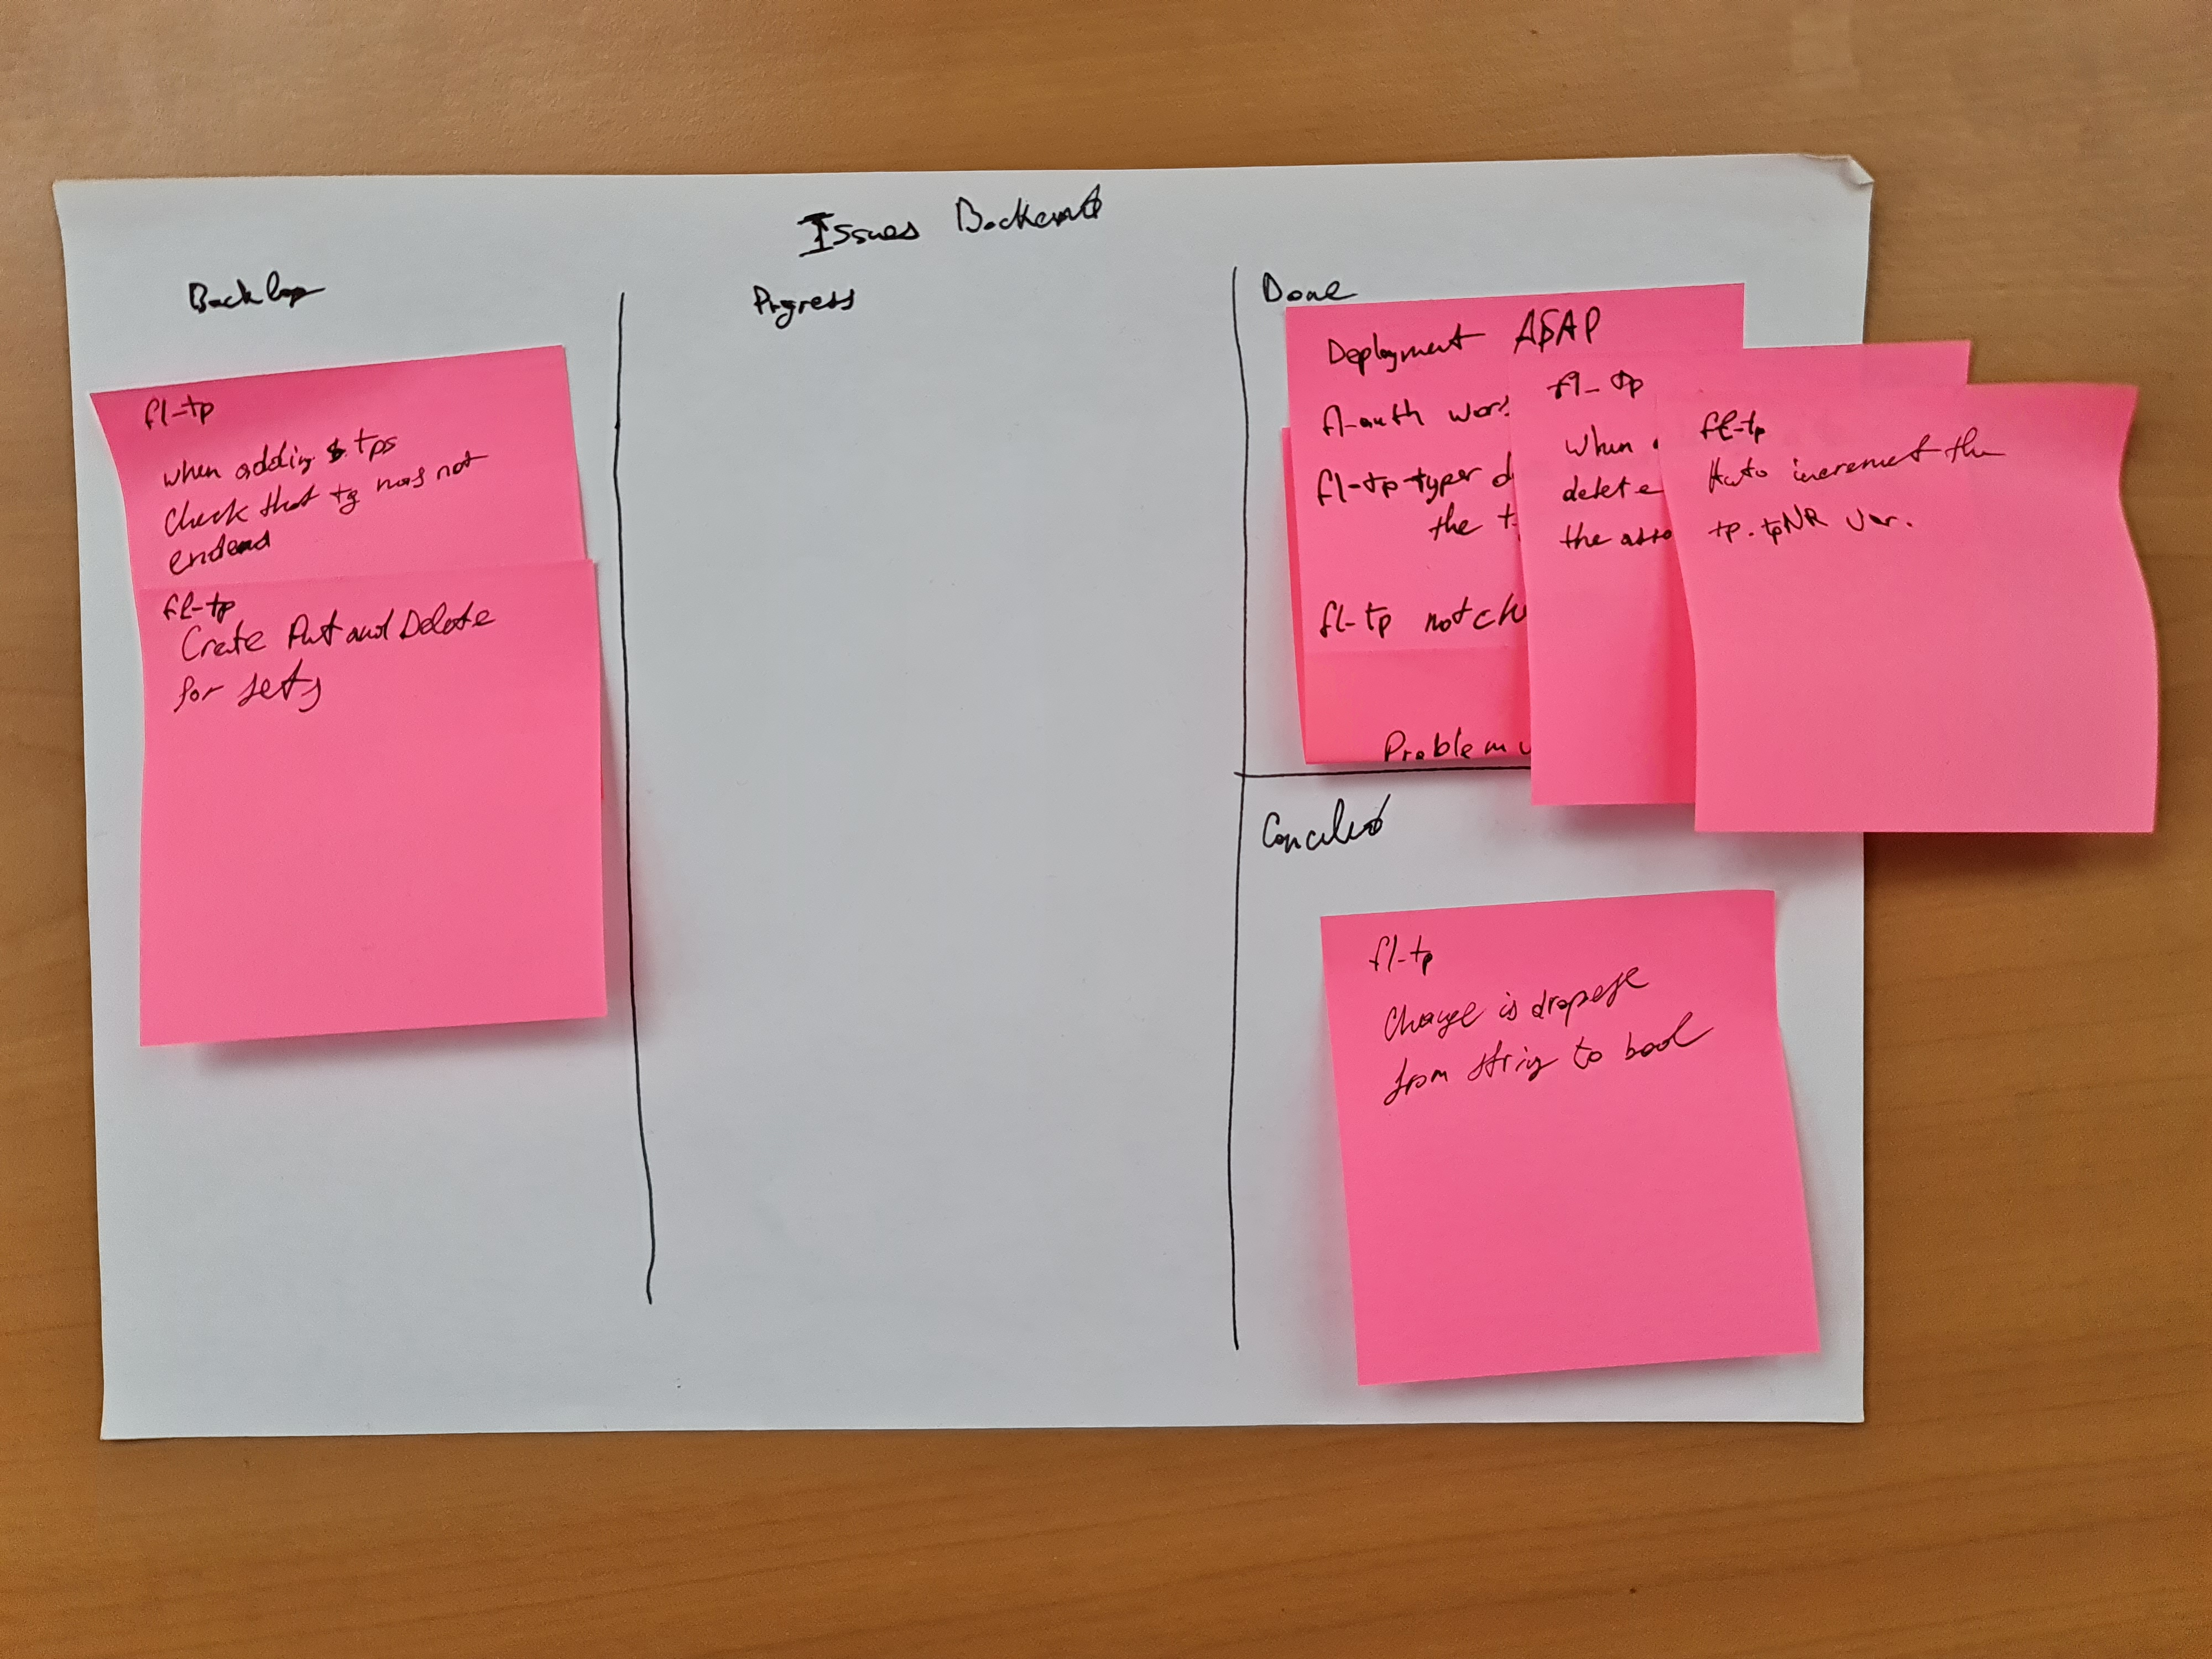 Issues Backend
Backlog
fl-tp
when adding tps
check that tg has not
ended
fl-tp
Crate Put and Delete
for sets
Progress
Done
Deployment ASAP
fl-auth
fl-tp-typer
the
fl-tp not
Problem
fl-tp
when
delete
the
fl-tp
Auto increment the
tp.tpNR var.
fl-tp
Change is
from string to bool